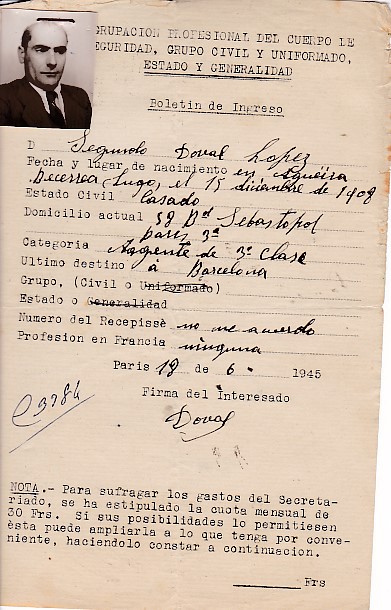 GRUPACION PROFESIONAL DEL CUERPO DE
SEGURIDAD, GRUPO CIVIL Y UNIFORMADO,
ESTADO Y GENERALIDAD
Boletin de Ingreso
D Segundo Doval Lopez
Fecha y lugar de nacimiento en Agüeira
Becerrea, Lugo, el 15 diciembre de 1908
Estado Civil Casado
Domicilio actual 58 Bd Sebastopol
Paris 3ª
Categoria Agente de 3ª Clase
Ultimo destino à Barcelona
Grupo, (Civil o Uniformado)
Estado o Generalidad
Numero del Recepissè no me acuerdo
Profesion en Francia ninguna
Paris 18 de 6 - 1945
Firma del Interesado
Doval
NOTA.- Para sufragar los gastos del Secreta-
riado, se ha estipulado la cuota mensual de
30 Frs. Si sus posibilidades lo permitiesen
èsta puede ampliarla a lo que tenga por conve-
niente, haciendolo constar a continuacion.
Frs